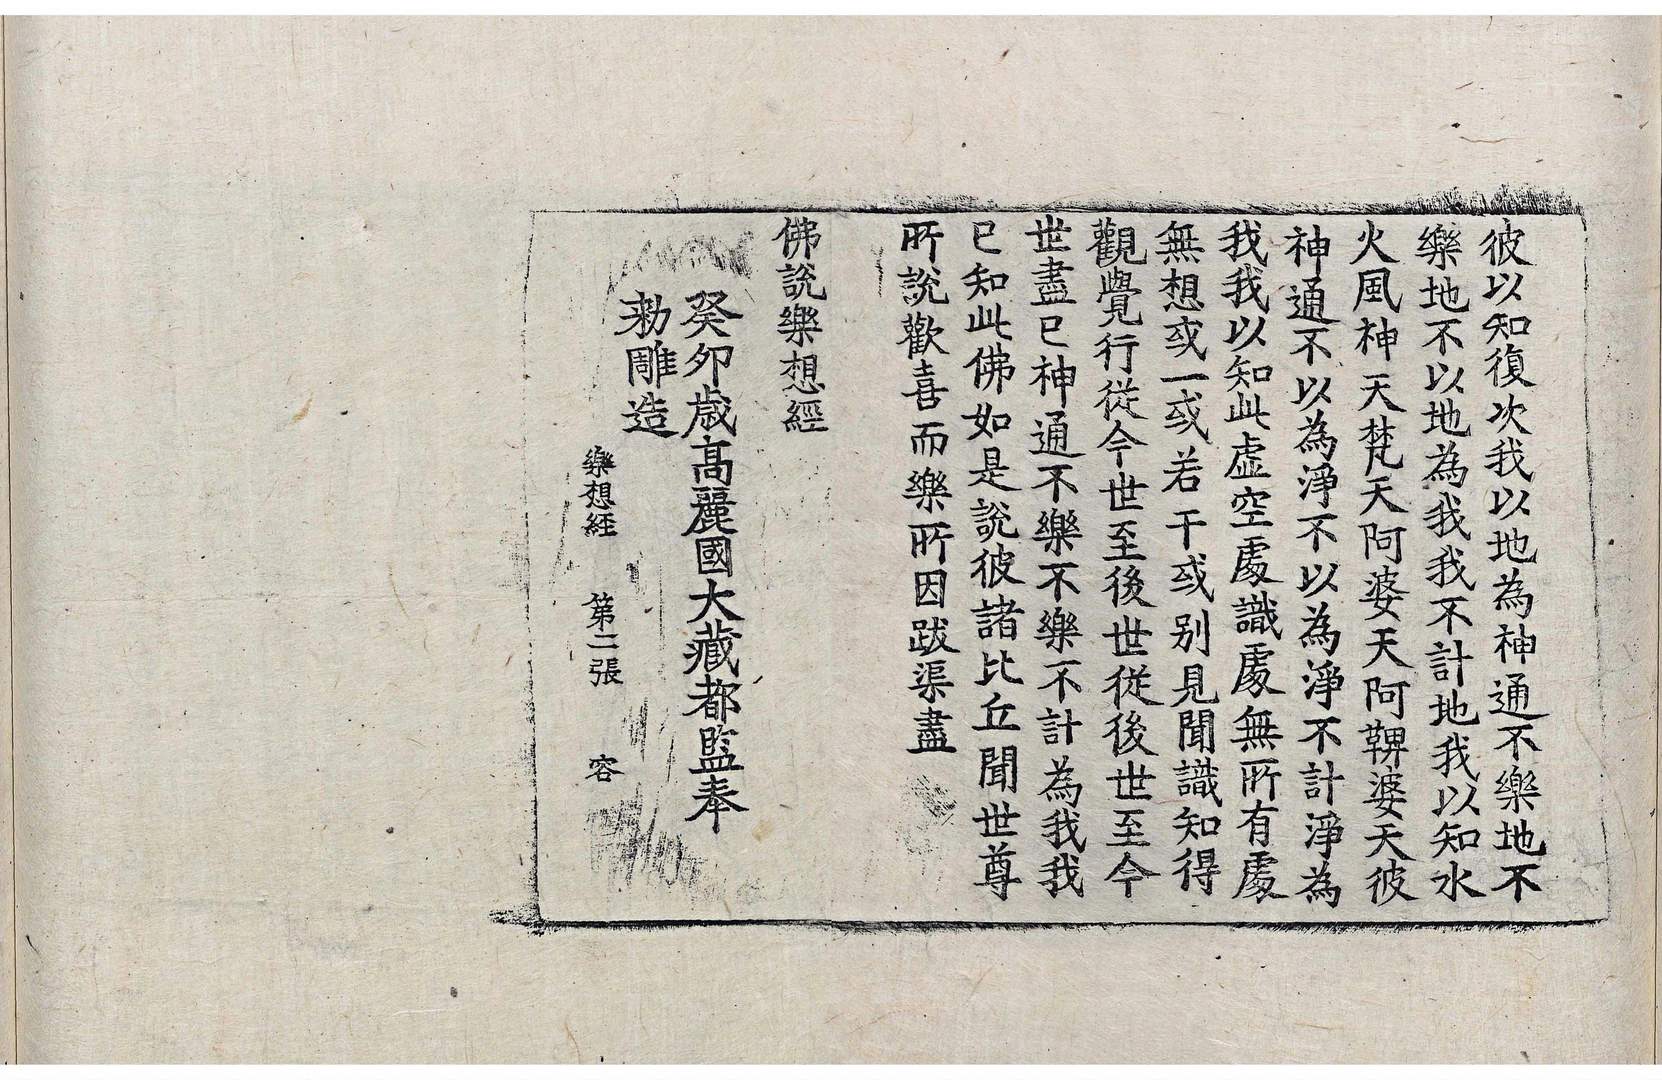 彼以知復次我以地為神通不樂地不
樂地不以地為我我不計地我以知水
火風神天梵天阿婆天阿鞞婆天彼
神通不以為淨不以為淨不計淨為
我我以知此虛空處識處無所有處
無想或一或若干或别見聞識知得
觀覺行從今世至後世從後世至今
世盡已神通不樂不樂不計為我我
已知此佛如是說彼諸比丘聞世尊
所說歡喜而樂所因跋渠盡
佛說樂想經
癸卯歲高麗國大藏都監奉
勑雕造
樂想経 第二張 容